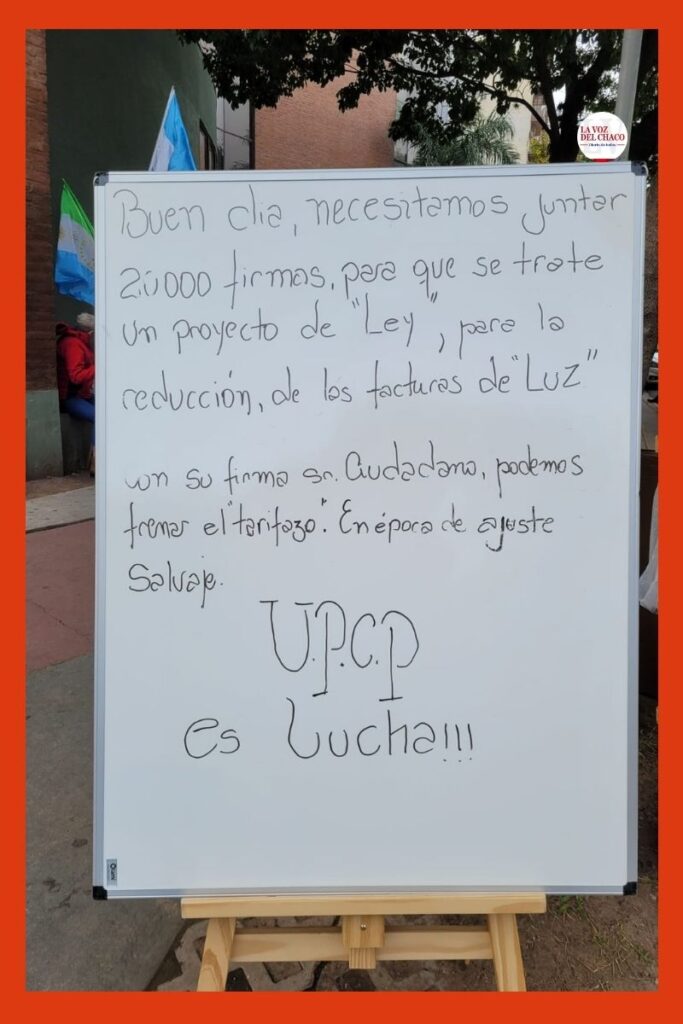 LA VOZ
DEL CHACO
Buen dia, necesitamos juntar
20.000 firmas, para que se trate
un proyecto de "Ley", para la
reducción, de las facturas de "Luz"
con su firma sr. Ciudadano, podemos
frenar el "tarifazo". En época de ajuste
Salvaje.
U.P.C.P
es Lucha!!!